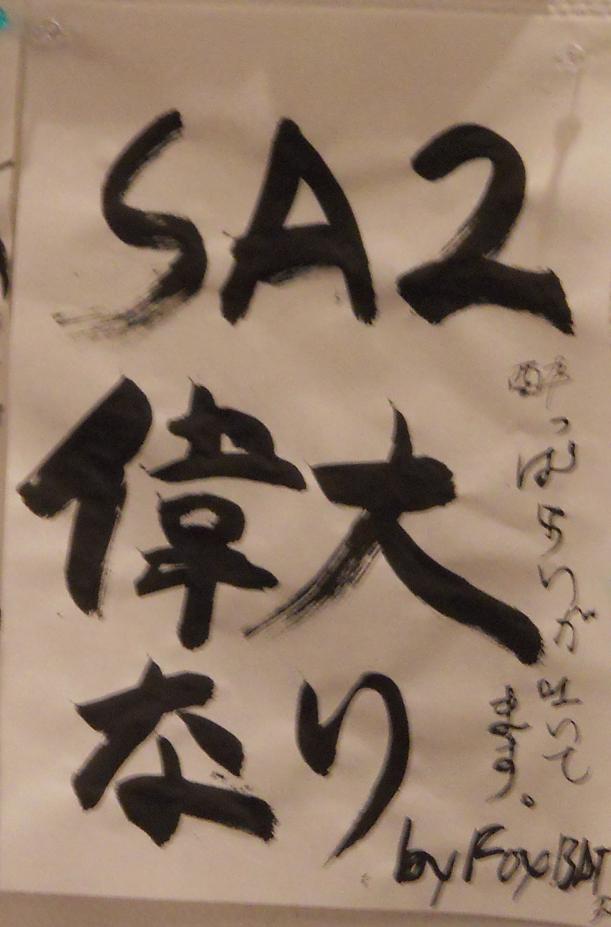 SA2
偉大
なり
酔っぱらいが吐いて
ます。
by FoxBAT